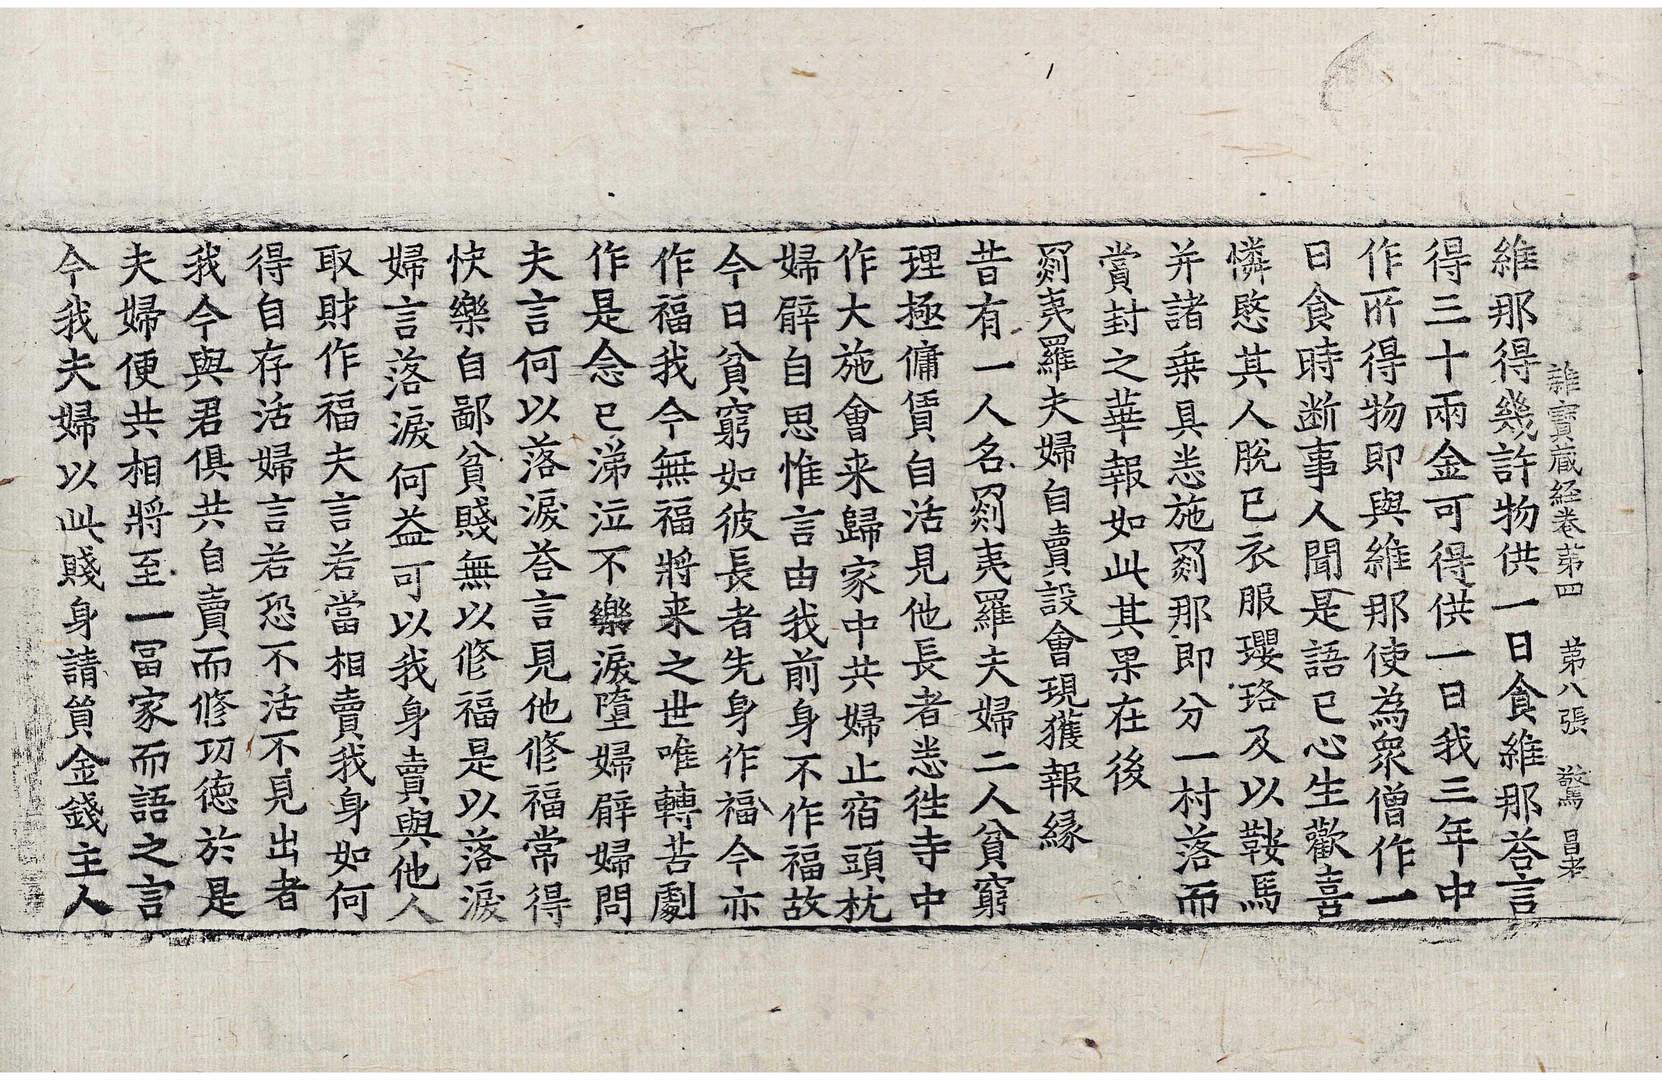 雜寶蔵経卷第四 第八張 驚 昌老
維那得幾許物供一日食維那荅言
得三十兩金可得供一日我三年中
作所得物即與維那使為衆僧作一
日食時断事人聞是語已心生歡喜
憐愍其人脫已衣服瓔珞及以鞍馬
并諸乗具悉施罽那即分一村落而
賞封之華報如此其果在後
罽夷羅夫婦自賣設會現獲報縁
昔有一人名罽夷羅夫婦二人貧窮
理極傭賃自活見他長者悉徃寺中
作大施會来歸家中共婦止宿頭枕
婦臂自思惟言由我前身不作福故
今日貧窮如彼長者先身作福今亦
作福我今無福將来之世唯轉苦劇
作是念已涕泣不樂淚墮婦臂婦問
夫言何以落淚荅言見他修福常得
快樂自鄙貧賤無以修福是以落淚
婦言落淚何益可以我身賣與他人
取財作福夫言若當相賣我身如何
得自存活婦言若恐不活不見出者
我今與君俱共自賣而修功徳於是
夫婦便共相將至一冨家而語之言
今我夫婦以此賤身請貿金錢主人